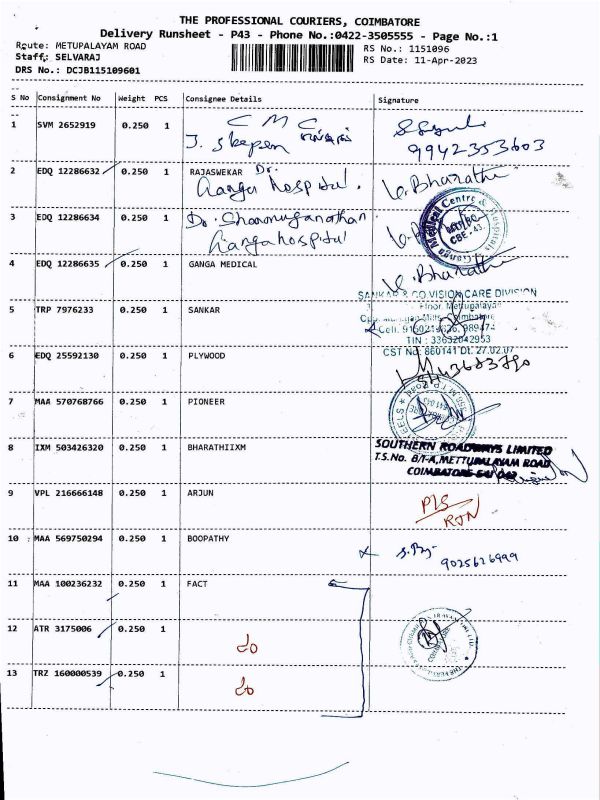 THE PROFESSIONAL COURIERS, COIMBATORE
Delivery Runsheet - P43 - Phone No.:0422-3505555 - Page No.:1
Route: METUPALAYAM ROAD
RS No.: 1151096
Staff: SELVARAJ
RS Date: 11-Apr-2023
DRS No.: DCJB115109601
S No Consignment No Weight PCS Consignee Details Signature
1 SVM 2652919 0.250 1 CMC
9942353603
2 EDQ 12286632 0.250 1 RAJASWEKAR Dr. V. Bharathi
Ganga hospital.
3 EDQ 12286634 0.250 1 Dr. Shanmuganathan
Ganga hospital
Ganga Medical Centre & Hospitals
CBE-43
4 EDQ 12286635 0.250 1 GANGA MEDICAL V. Bharathi
SANKAR & CO VISION CARE DIVISION
Floor, Mettupalayam
5 TRP 7976233 0.250 1 SANKAR
Coimbatore
TIN : 33632042953
CST No 860141 Dt. 27.02.07
6 EDQ 25592130 0.250 1 PLYWOOD
7 MAA 570768766 0.250 1 PIONEER
8 IXM 503426320 0.250 1 BHARATHIIXM
SOUTHERN ROADWAYS LIMITED
T.S.No. 8/1-A, METTUPALAYAM ROAD
COIMBATORE-641 043
9 VPL 216666148 0.250 1 ARJUN
Pls
RTN
10 MAA 569750294 0.250 1 BOOPATHY
9025626999
11 MAA 100236232 0.250 1 FACT
12 ATR 3175006 0.250 1
13 TRZ 160000539 0.250 1